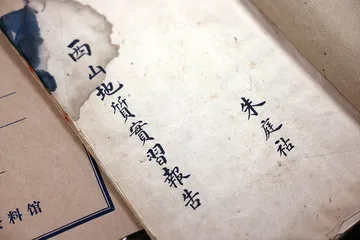 西山地質實習報告
朱庭祜
料馆